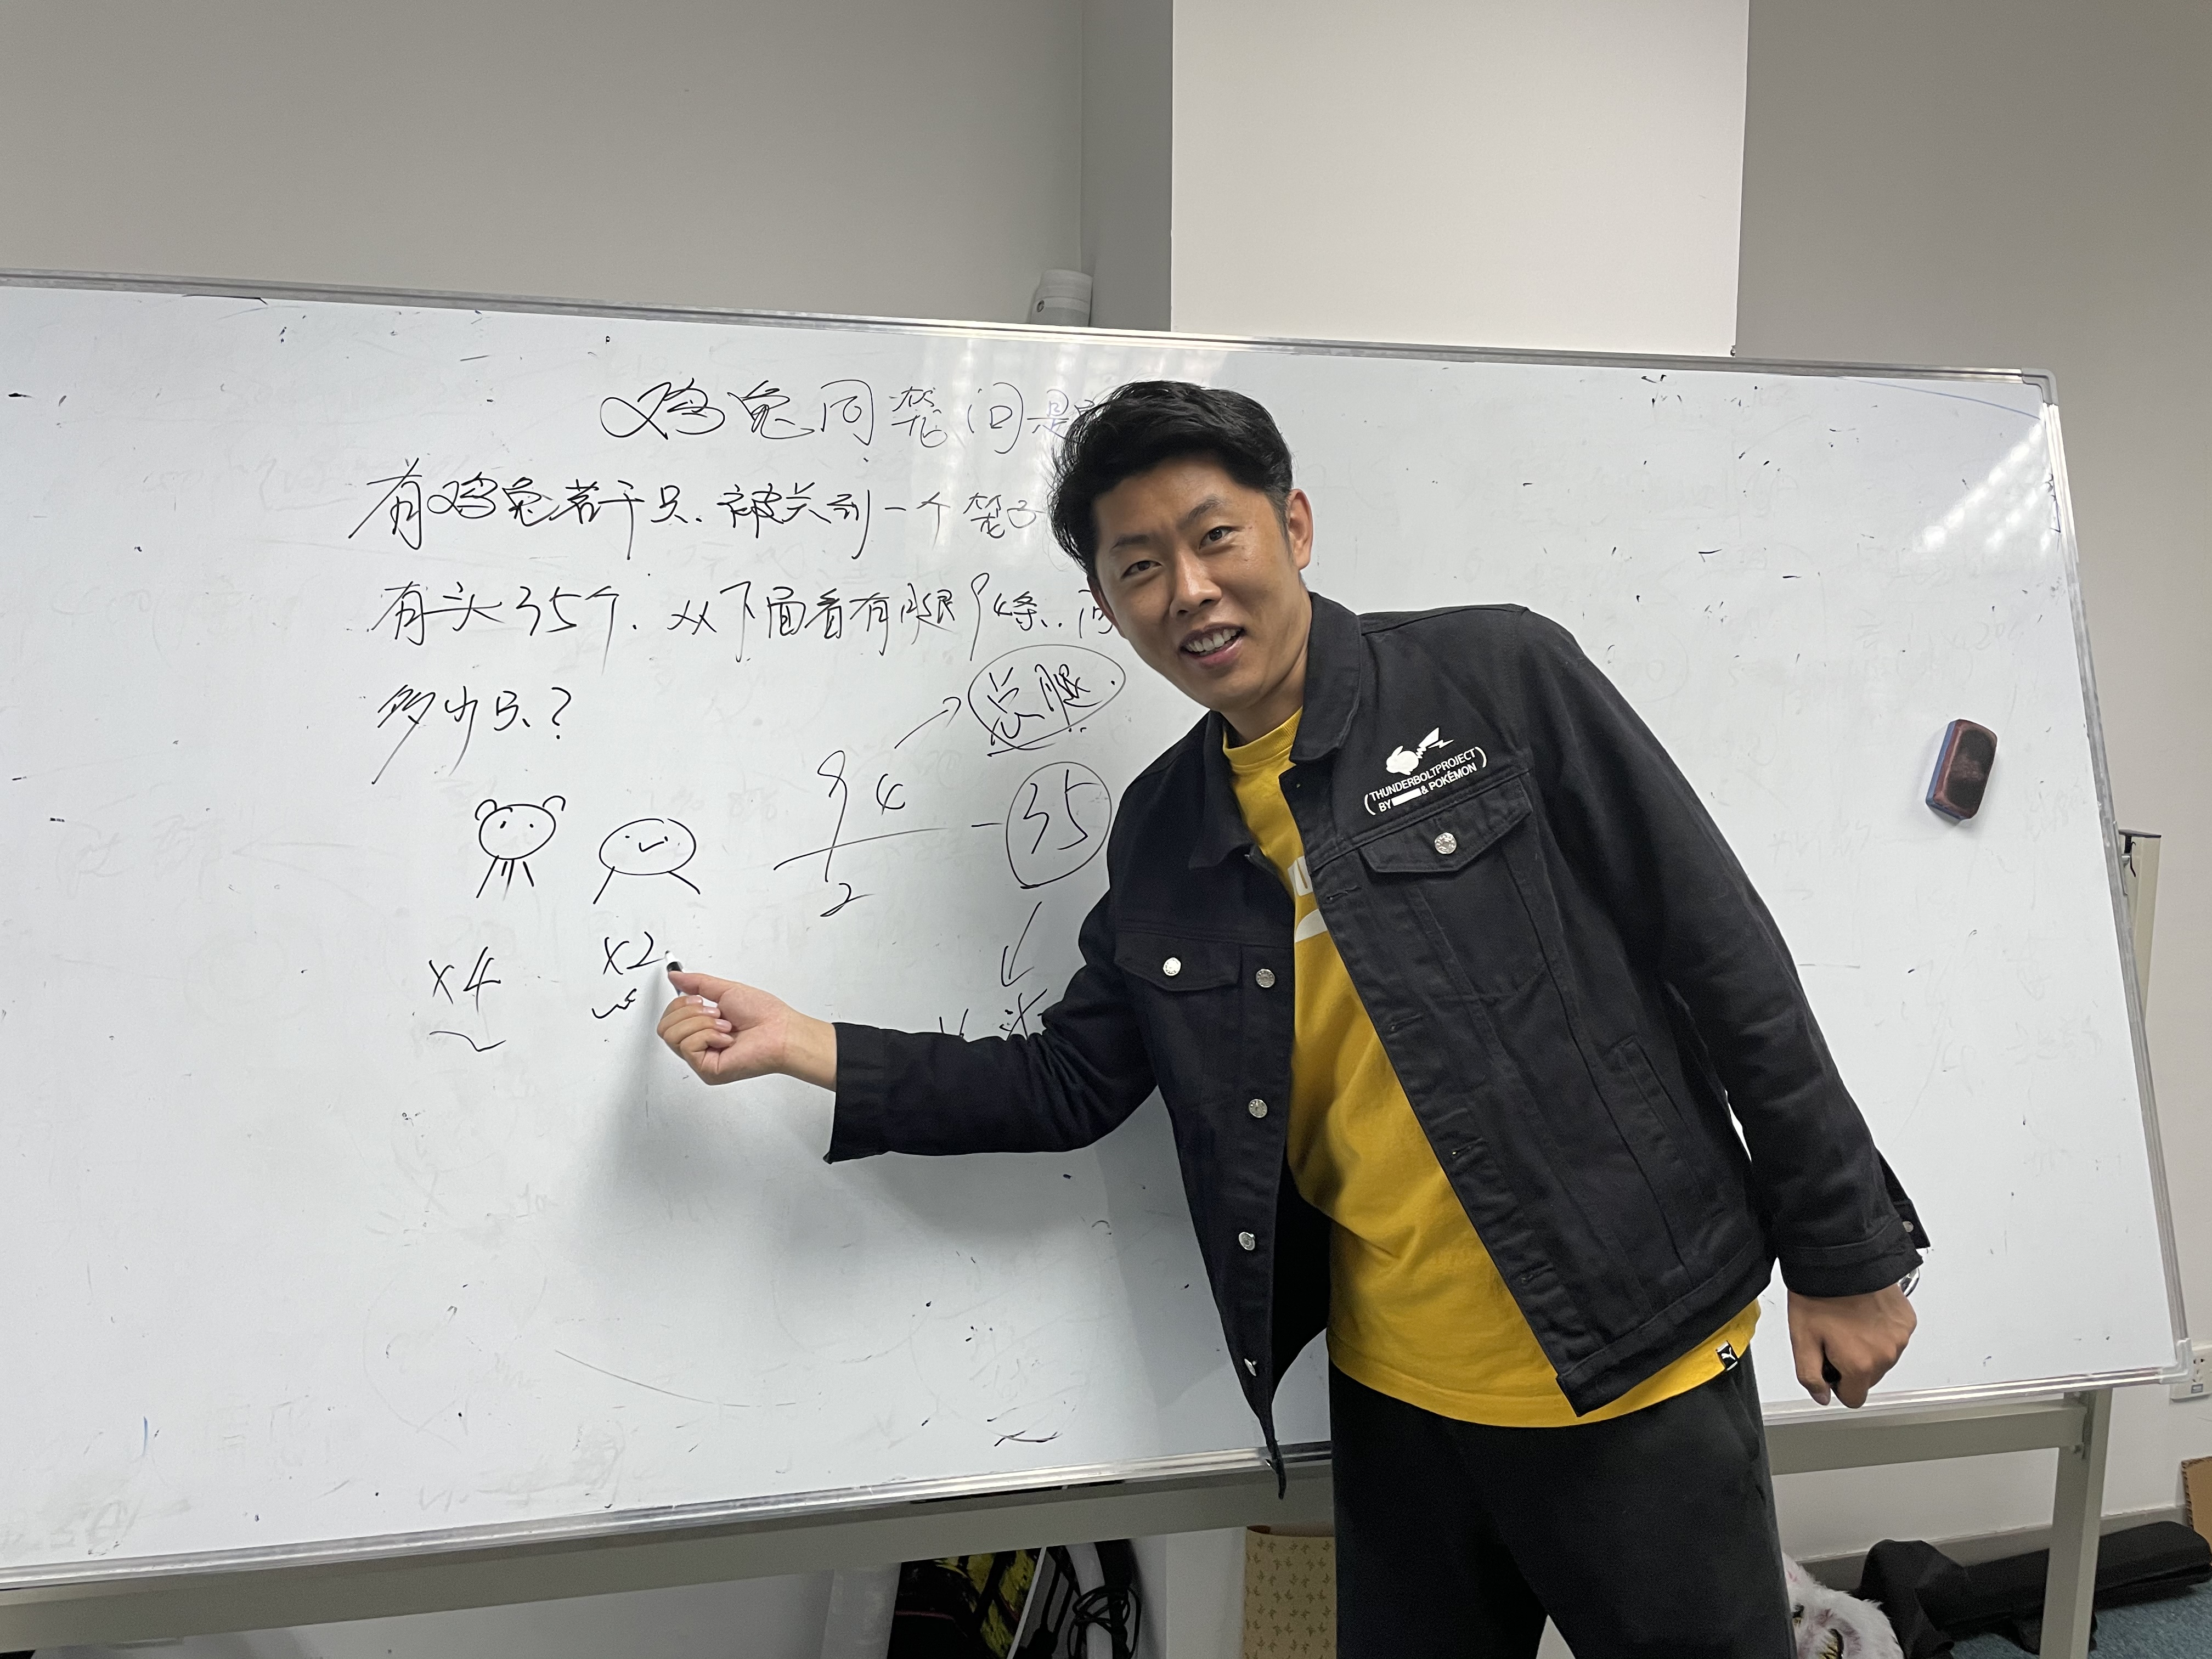 鸡兔同笼问题
有鸡兔若干只.被关到一个笼子
有头35个.从下面看有腿94条..问
多少只?
总腿.
94
—
2
-35
×4
×2
头
(THUNDERBOLTPROJECT
BY & POKÉMON)